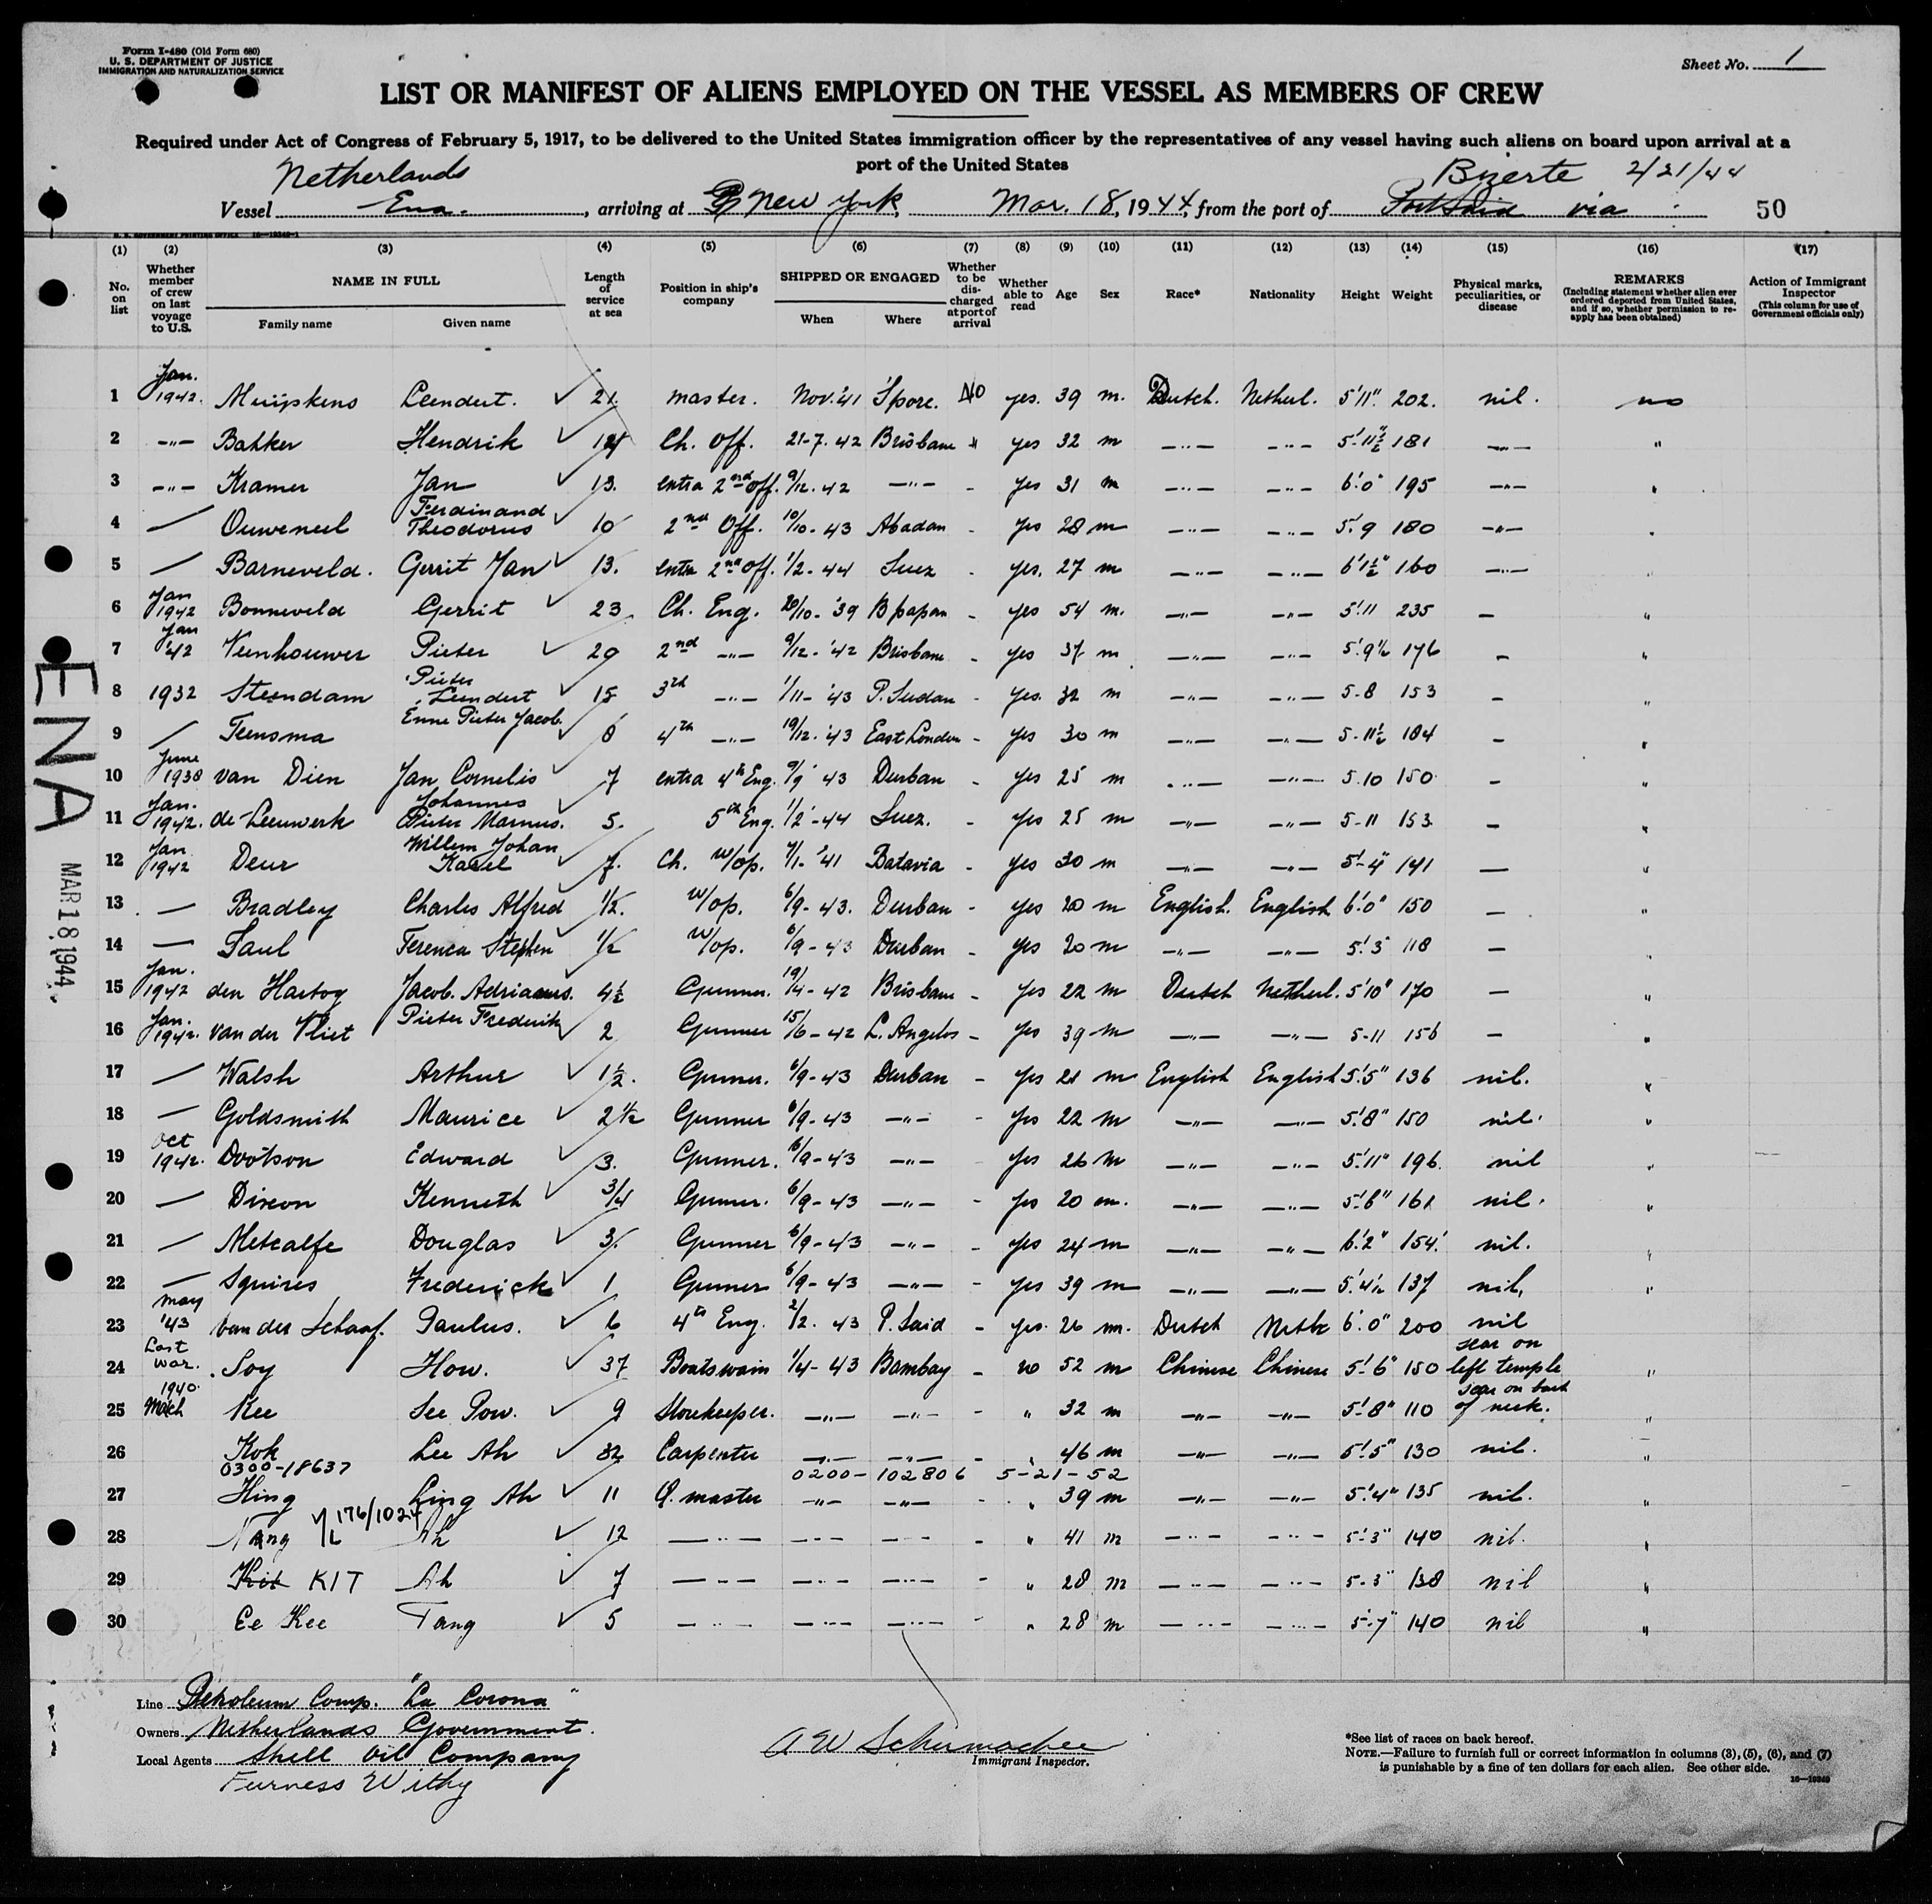 Form I-480 (Old Form 680)
U. S. DEPARTMENT OF JUSTICE
IMMIGRATION AND NATURALIZATION SERVICE
Sheet No. 1
LIST OR MANIFEST OF ALIENS EMPLOYED ON THE VESSEL AS MEMBERS OF CREW
Required under Act of Congress of February 5, 1917, to be delivered to the United States immigration officer by the representatives of any vessel having such aliens on board upon arrival at a
port of the United States
Netherlands Bizerte 2/21/44
Vessel Ena. , arriving at New York, Mar. 18, 1944, from the port of Port Said via 50
(1) (2) (3) (4) (5) (6) (7) (8) (9) (10) (11) (12) (13) (14) (15) (16) (17)
No. on list Whether member of crew on last voyage to U.S. NAME IN FULL Family name Given name Length of service at sea Position in ship's company SHIPPED OR ENGAGED When Where Whether to be discharged at port of arrival Whether able to read Age Sex Race* Nationality Height Weight Physical marks, peculiarities, or disease REMARKS (Including statement whether alien ever ordered deported from United States, and if so, whether permission to re-apply has been obtained) Action of Immigrant Inspector (This column for use of Government officials only)
1 Jan. 1942. Muijskens Leendert. 21. master. Nov. '41 S'pore. No yes. 39 m. Dutch. Netherl. 5'11". 202. nil. no
2 -"- Bakker Hendrik 14 Ch. Off. 21-7. 42 Brisbane " yes 32 m -"- -"- 5'-11½" 181 -"- "
3 -"- Kramer Jan 13. extra 2nd off. 9/12. 42 -"- - yes 31 m -"- -"- 6'.0" 195 -"- "
4 — Ouweneel Ferdinand Theodorus 10 2nd Off. 10/10-43 Abadan - yes 28 m -"- -"- 5'.9 180 -"- "
5 — Barneveld. Gerrit Jan 13. extra 2nd off. 1/2-44 Suez - yes. 27 m -"- -"- 6'1½" 160 -"- "
6 Jan 1942 Bonneveld Gerrit 23 Ch. Eng. 20/10-'39 B'papan - yes 54 m. -"- -"- 5'.11 235 - "
7 Jan '42 Veenhouwer Pieter 20 2nd -"- 9/12-'42 Brisbane - yes 37 m -"- -"- 5'.9½ 176 - "
8 1932 Steendam Pieter Leendert 15 3rd -"- 1/11-'43 P. Sudan - yes. 32 m -"- -"- 5-8 153 - "
9 — Teensma Enne Pieter Jacob. 8 4th -"- 19/12-'43 East London - yes 30 m -"- -"- 5-11½ 184 - "
10 June 1938 van Dien Jan Cornelis 7 extra 4th Eng. 9/9' 43 Durban - yes 25 m -"- -"- 5.10 150 - "
11 Jan. 1942. de Leeuwerk Johannes Pieter Marinus. 5. 5th Eng. 1/2-44 Suez. - yes 25 m -"- -"- 5-11 153 - "
12 Jan 1942 Deur Willem Johan Karel 7. Ch. W/op. 4/1-'41 Batavia - yes 30 m -"- -"- 5'-4" 141 - "
13 — Bradley Charles Alfred 1/2. W/op. 6/9-43. Durban - yes 20 m English. English 6'.0" 150 - "
14 — Saul Terence Stephen 1/2 W/op. 6/9-43 Durban - yes 20 m -"- -"- 5'.3" 118 - "
15 Jan. 1942 den Hartog Jacob. Adrianus. 4½ Gunner. 19/4-42 Brisbane - yes 22 m Dutch Netherl. 5'10" 170 - "
16 Jan. 1942. van der Vliet Pieter Frederik 2 Gunner 15/6-42 L. Angelos - yes 39 m -"- -"- 5-11 156 - "
17 — Walsh Arthur 1½. Gunner. 6/9-43 Durban - yes 21 m English English 5'.5" 136 nil. "
18 — Goldsmith Maurice 2½ Gunner 6/9-43 -"- - yes 22 m -"- -"- 5'.8" 150 nil. "
19 Oct 1942. Dootson Edward 3. Gunner. 6/9-43 -"- yes 26 m -"- -"- 5'.11" 196 nil "
20 — Dixon Kenneth 3/4 Gunner. 6/9-43 -"- - yes 20 m. -"- -"- 5'-6" 161 nil. "
21 — Metcalfe Douglas 3. Gunner 6/9-43 -"- - yes 24 m -"- -"- 6'.2" 154. nil. "
22 — Squires Frederick 1 Gunner 6/9-43 -"- - yes 39 m -"- -"- 5'.4½ 137 nil, "
23 may '43 van der Schaaf. Paulus. 6 4th Eng. 2/2. 43 P. Said - yes. 26 m. Dutch Neth 6'.0" 200 nil
24 Last war. Soy How. 37 Boatswain 1/4-43 Bambay - no 52 m Chinese Chinese 5'-6" 150 scar on left temple "
25 1940. March Kee See Pow. 9 Storekeeper. -"- -"- - " 32 m -"- -"- 5'-8" 110 scar on back of neck. "
26 Kok Lee Ah 32 Carpenter -"- -"- - " 46 m -"- -"- 5'.5" 130 nil. "
0300-18637 0200-102806 5-21-52
27 Hing Ling Ah 11 Q. master -"- -"- - " 39 m -"- -"- 5'.4" 135 nil. "
28 176/1024 Ah 12 -"- -"- -"- " 41 m -"- -"- 5'-3" 140 nil. "
29 Kit KIT Ah 7 -"- -"- -"- - " 28 m -"- -"- 5-3" 138 nil "
30 Ee Kee Tang 5 -"- -"- -"- - " 28 m -"- -"- 5'-7" 140 nil "
ENA
MAR 18 1944
Line Petroleum Comp. "La Corona"
Owners Netherlands Government.
Local Agents Shell Oil Company
Furness Withy
A W Schumacher
Immigrant Inspector.
*See list of races on back hereof.
NOTE.—Failure to furnish full or correct information in columns (3), (5), (6), and (7)
is punishable by a fine of ten dollars for each alien. See other side.